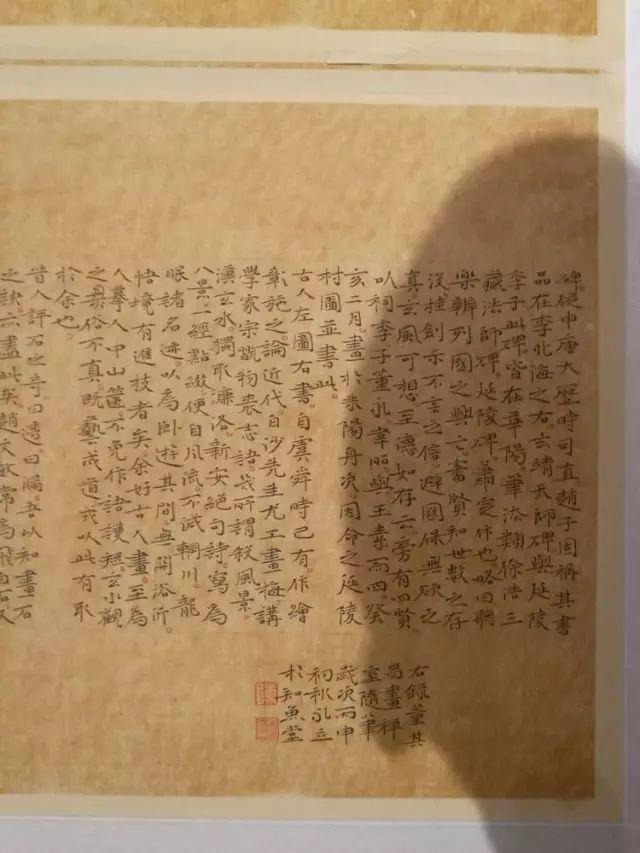 碑後申唐大歷時司直趙子固稱其書
品在李北海之右玄靖天師碑與延陵
季子此碑皆在平陽筆法類徐浩三
藏法師碑延陵碑蕭定作也略曰聘
樂辨列國之興亡審賢知世數之存
沒挂劍示不言之信避國保無欲之
真玄風可想至德如存云旁有四賢
以祠季子董永韋昭與王素而四癸
亥二月畫於朱陽丹次因命之延陵
村圖並書此
古人左圖右書自虞舜時已有作繪
彰施之論近代白沙先生尤工畫梅講
學家宗翫物喪志語幾所謂殺風景
漢玄水獨取濂洛新安絕句詩寫為
八景一經點綴便自風流不減輞川龍
眠諸名迹以為卧遊其間無關浴沂
悟境有進技者矣余好古人畫至為
人摹人中山篋不免作語謾短玄小觀
之異俗不真既藝成道或以此有取
於余也
昔人評石之奇曰透曰漏吾以知畫石
之訣亦盡此矣趙文敏常為飛白石又
右錄董其
昌畫禪
室隨筆
歲次丙申
初秋永立
於知魚堂